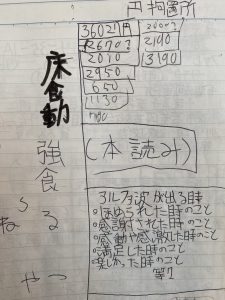 円 拘置所
36027円
2670円
2010
2950
650
1130
2000円
2190
3190
床食動
強食
(本読み)
る
ね
やつ
アルファ波が出る時
・ほめられた時のこと
・感謝された時のこと
・感動や感激した時のこと
・満足した時のこと
・楽しかった時のこと